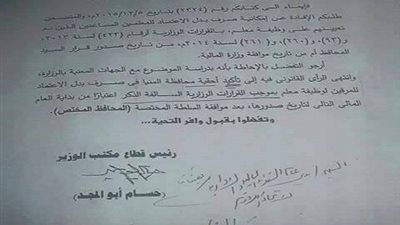 إيماء إلى كتابكم رقم (٢٣٢٤) بتاريخ ٢٠١٥/١٢/٥م، والمتضمن
طلبكم الإفادة عن إمكانية صرف بدل الاعتماد للمعلمين المساعدين الذين تم
تعيينهم على وظيفة معلم، بالقرارات الوزارية أرقام (٤٢٣) لسنة ٢٠١٣،
و(٩٣)، و(٢٦٠)، و(٢١٠) لسنة ٢٠١٤م، من تاريخ صدور قرار السيد
المحافظ أم من تاريخ موافقة وزارة المالية.
أرجو التفضل بالإحاطة بأنه بدراسة الموضوع مع الجهات المعنية بالوزارة،
وانتهى الرأي القانوني فيه إلى تأكيد أحقية محافظة المنيا في صرف بدل الاعتماد
للمرقين لوظيفة معلم بموجب القرارات الوزارية السالفة الذكر اعتبارًا من بداية العام
المالي التالي لتاريخ صدورها، بعد موافقة السلطة المختصة (المحافظ المختص).
وتفضلوا بقبول وافر التحية...
رئيس قطاع مكتب الوزير
(حسام أبو المجد)